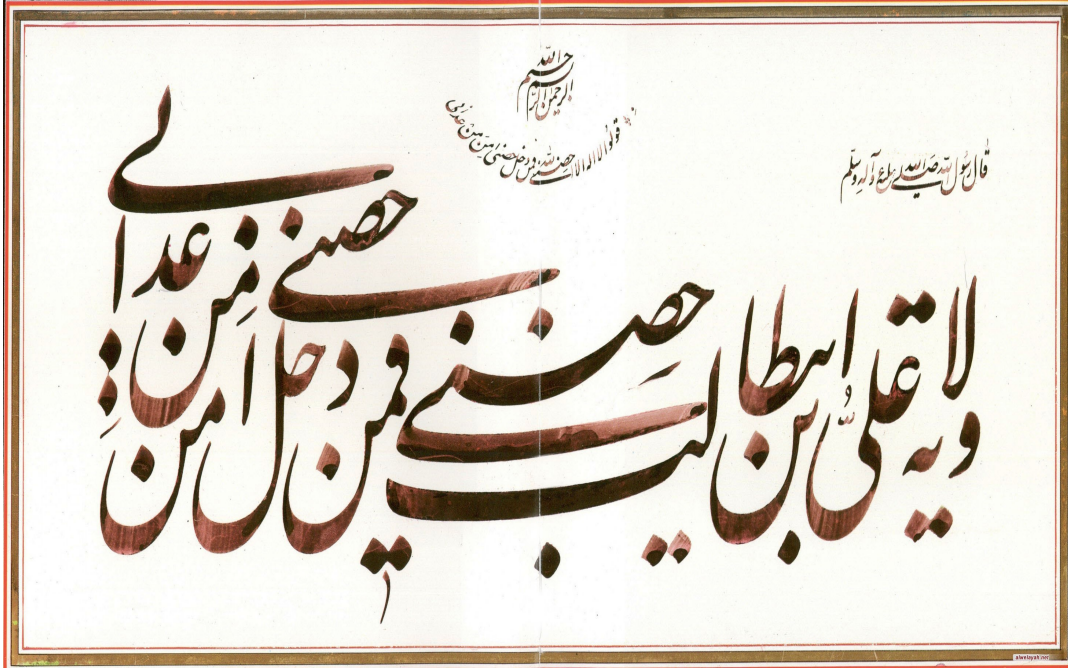 بسم الله الرحمن الرحيم
قولوا لا اله الا الله حصنی فمن دخل حصنی امن من عذابی
قال رسول الله صلی الله علیه و آله وسلم
ولایة علیّ بن ابیطالب حصنی فمن دخل حصنی امن مِن عذابی
alwelayah.net